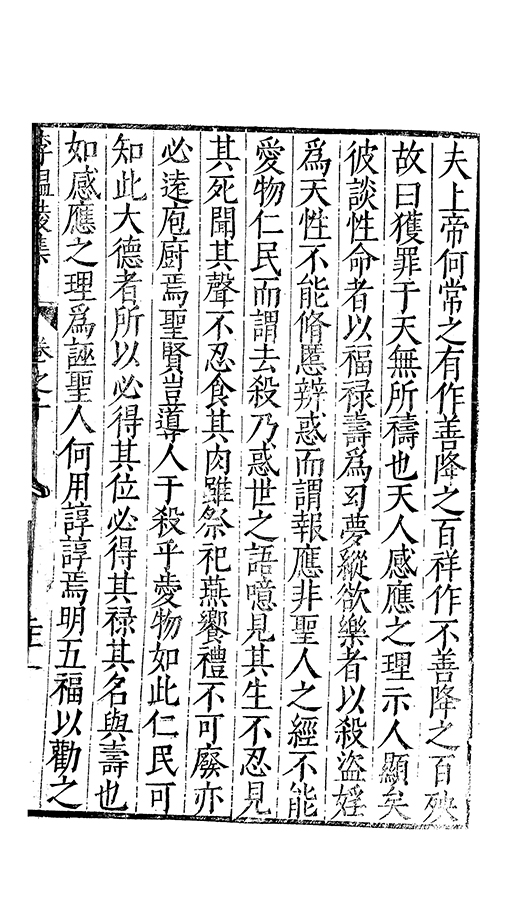 夫上帝何常之有作善降之百祥作不善降之百殃
故曰獲罪于天無所禱也天人感應之理示人顯矣
彼談性命者以福祿壽爲幻夢縱欲樂者以殺盜婬
爲天性不能脩慝辨惑而謂報應非聖人之經不能
愛物仁民而謂去殺乃惑世之語噫見其生不忍見
其死聞其聲不忍食其肉雖祭祀燕饗禮不可廢亦
必遠庖廚焉聖賢豈導人于殺乎愛物如此仁民可
知此大德者所以必得其位必得其祿其名與壽也
如感應之理爲誣聖人何用諄諄焉明五福以勸之
李温陵集 卷之十